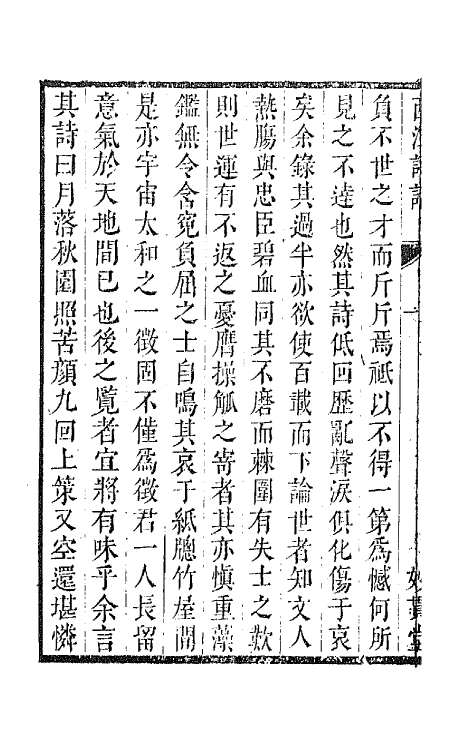 負不世之才而斤斤焉祗以不得一第為憾何所
見之不達也然其詩低回歷亂聲淚俱化傷于哀
矣余錄其過半亦欲使百載而下論世者知文人
熱腸與忠臣碧血同其不磨而棘圍有失士之歎
則世運有不返之憂膺操觚之寄者其亦慎重藻
鑑無令含寃負屈之士自鳴其哀于紙牕竹屋間
是亦宇宙太和之一徵固不僅為徵君一人長留
意氣於天地間已也後之覽者宜將有味乎余言
其詩曰月落秋園照苦顏九回上策又空還堪憐